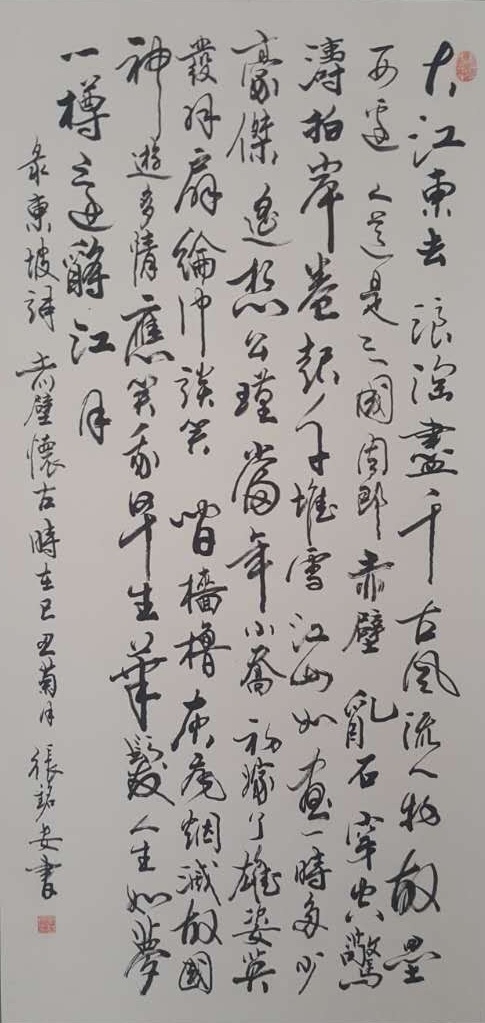 大江東去浪淘盡千古風流人物故壘
西邊人道是三國周郎赤壁亂石穿空驚
濤拍岸卷起千堆雪江山如畫一時多少
豪傑遙想公瑾當年小喬初嫁了雄姿英
發羽扇綸巾談笑間檣櫓灰飛烟滅故國
神遊多情應笑我早生華髮人生如夢
一樽還酹江月
彔東坡詞赤壁懷古時在己丑菊月 張銘安書